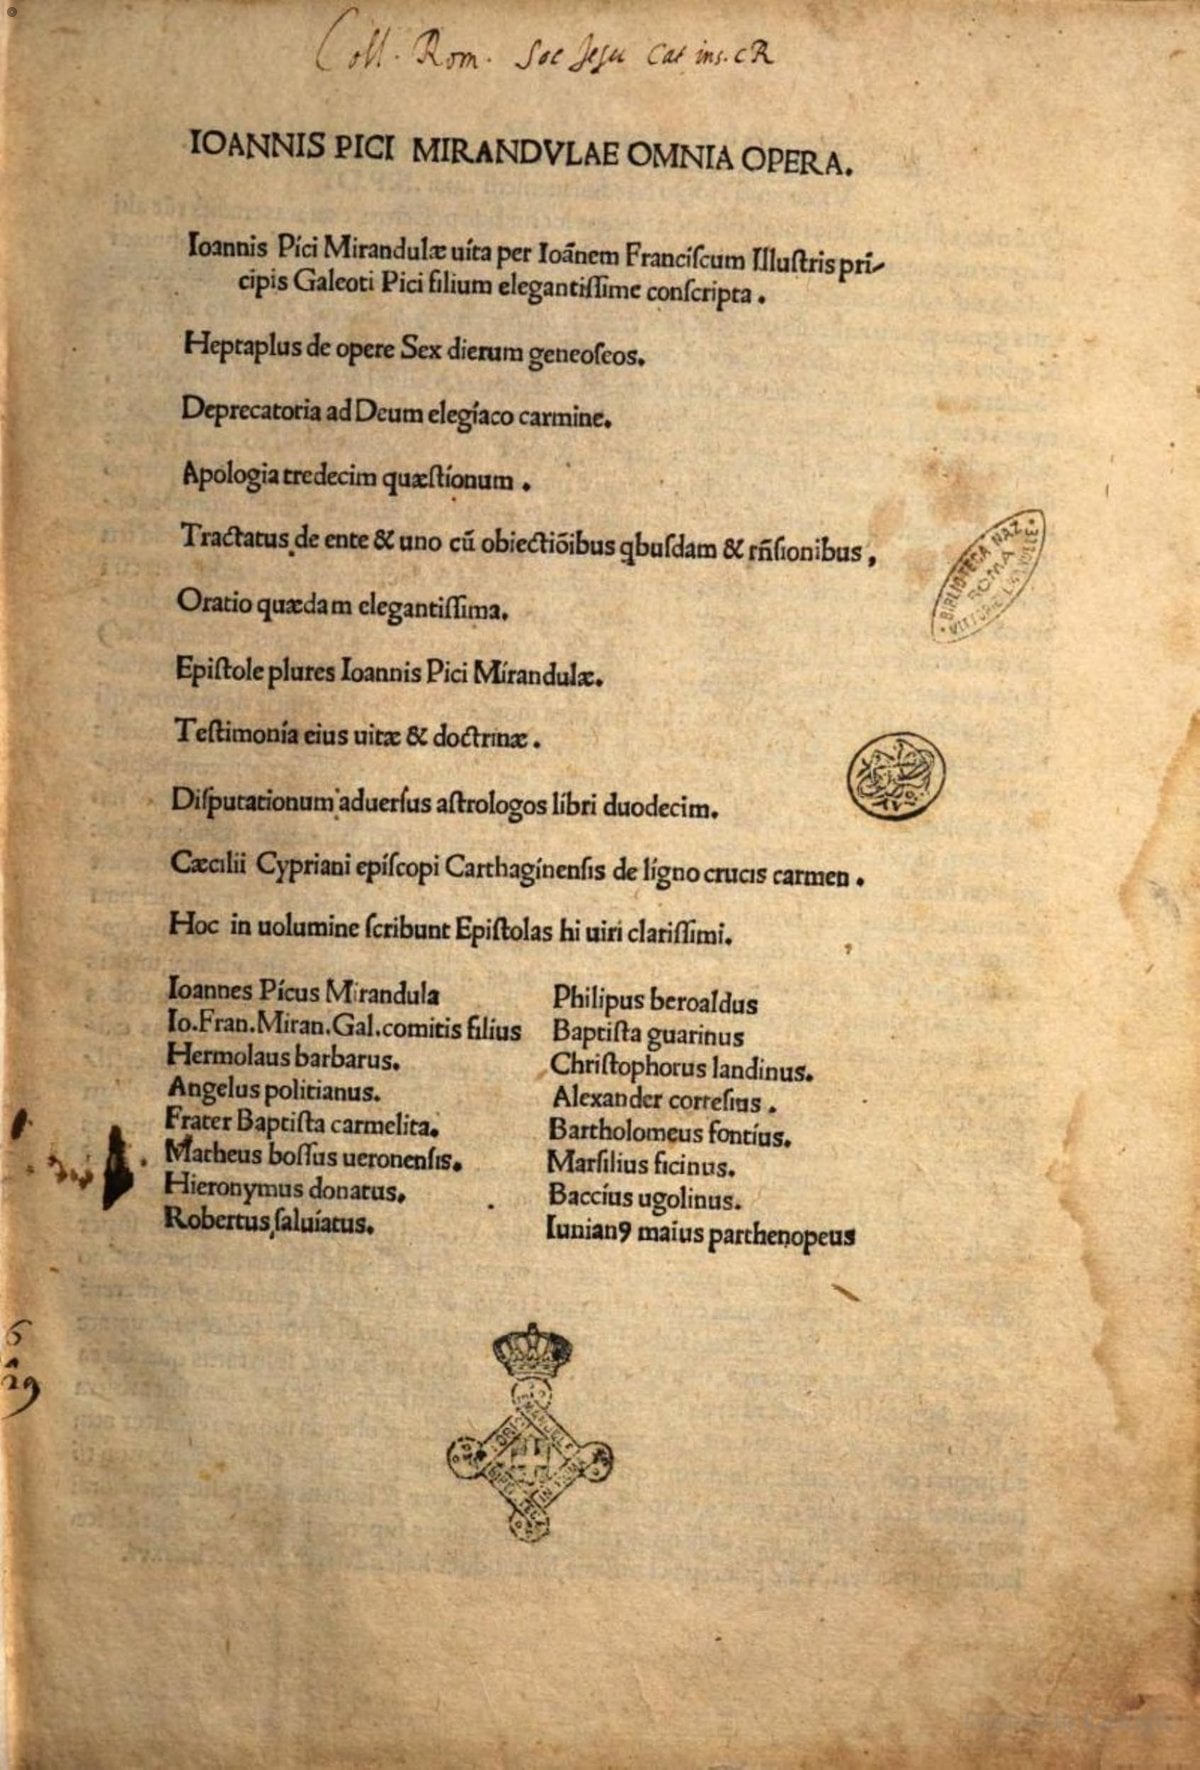 Coll. Rom. Soc Jesu Cat ins. CR
IOANNIS PICI MIRANDVLAE OMNIA OPERA.
Ioannis Pici Mirandulæ uita per Ioãnem Franciſcum Illuſtris pri-
cipis Galeoti Pici filium elegantiſſime conſcripta.
Heptaplus de opere Sex dierum geneoſeos.
Deprecatoria ad Deum elegiaco carmine.
Apologia tredecim quæſtionum.
Tractatus de ente & uno cũ obiectiõibus qbuſdam & rñſionibus,
Oratio quædam elegantiſſima.
Epiſtole plures Ioannis Pici Mirandulæ.
Teſtimonia eius uitæ & doctrinæ.
Diſputationum aduerſus aſtrologos libri duodecim.
Cæcilii Cypriani epiſcopi Carthaginenſis de ligno crucis carmen.
Hoc in uolumine ſcribunt Epiſtolas hi uiri clariſſimi.
Ioannes Picus Mirandula
Io.Fran.Miran.Gal.comitis filius
Hermolaus barbarus.
Angelus politianus.
Frater Baptiſta carmelita.
Matheus boſſus ueronenſis.
Hieronymus donatus.
Robertus ſaluiatus.
Philipus beroaldus
Baptiſta guarinus
Chriſtophorus landinus.
Alexander corteſius.
Bartholomeus fontius.
Marſilius ficinus.
Baccius ugolinus.
Iunianꝰ maius parthenopeus
BIBLIOTECA NAZ
ROMA